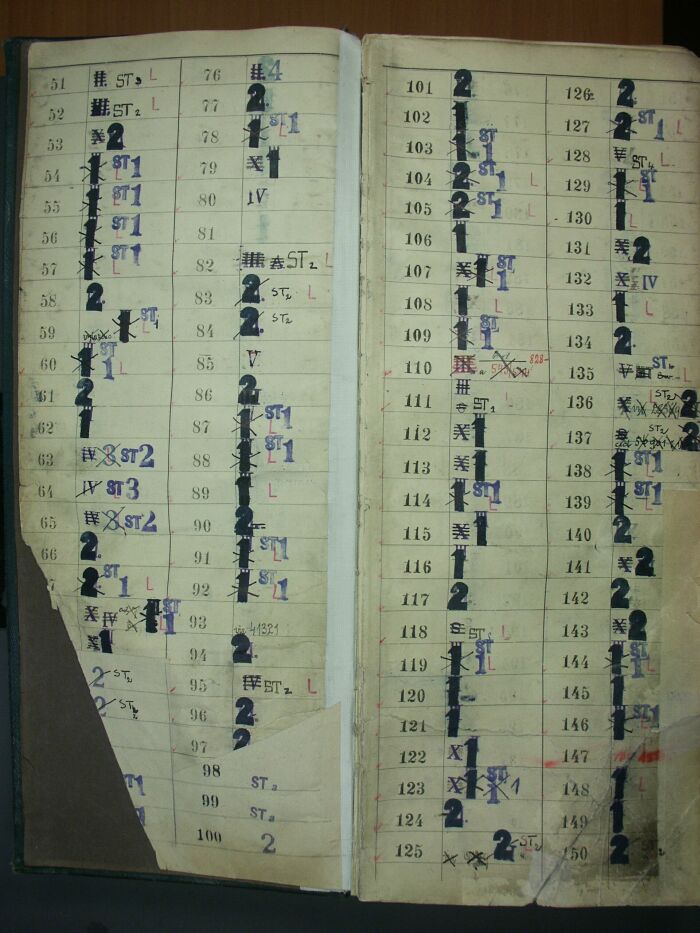 51 ST3 L
52 ST2 L
53 X 2
54 1 ST1 L
55 1 ST1 L
56 1 ST1 L
57 1 ST1 L
58 2.
59 1 ST1 L
60 1 ST1 L
61 2
62 1
63 IV 3 ST2
64 IV ST3
65 IV 3 ST2
66 2.
2. ST1 L
X IV 1 ST1 L
X 1
2 ST2
2 ST2
ST1
1
76 4
77 2.
78 1 ST1 L
79 X 1
80 IV
81
82 ST2 L
83 2. ST2 L
84 2. ST2
85 V
86 2
87 1 ST1 L
88 1 ST1 L
89 1 L
90 2
91 1 ST1 L
92 1 ST1 L
93 41321
94 2
95 IV ST2 L
96 2.
97 2
98 ST2
99 ST3
100 2
101 2
102 1
103 1 ST1
104 2 ST1 L
105 2 ST1 L
106 1
107 X 1 ST1
108 1 L
109 1 ST1 L
110 828-
111 III ST1 L
112 X 1
113 X 1
114 1 ST1 L
115 X 1
116 1
117 2
118 ST L
119 1 ST1 L
120 1
121 1
122 X 1
123 X 1 X 1
124 2.
125 X X 2 ST2
126 2.
127 2 ST1 L
128 V ST4 L
129 1 ST1 L
130 1 L
131 X 2
132 X IV
133 1 L
134 2
135 V ST L
136 X ST2 2
137 ST2 2
138 1 ST1 L
139 1 ST1 L
140 2
141 X 2
142 2
143 X 2
144 1 ST1 L
145 1
146 1 ST1 L
147
148 1 L
149 1
150 2 ST2